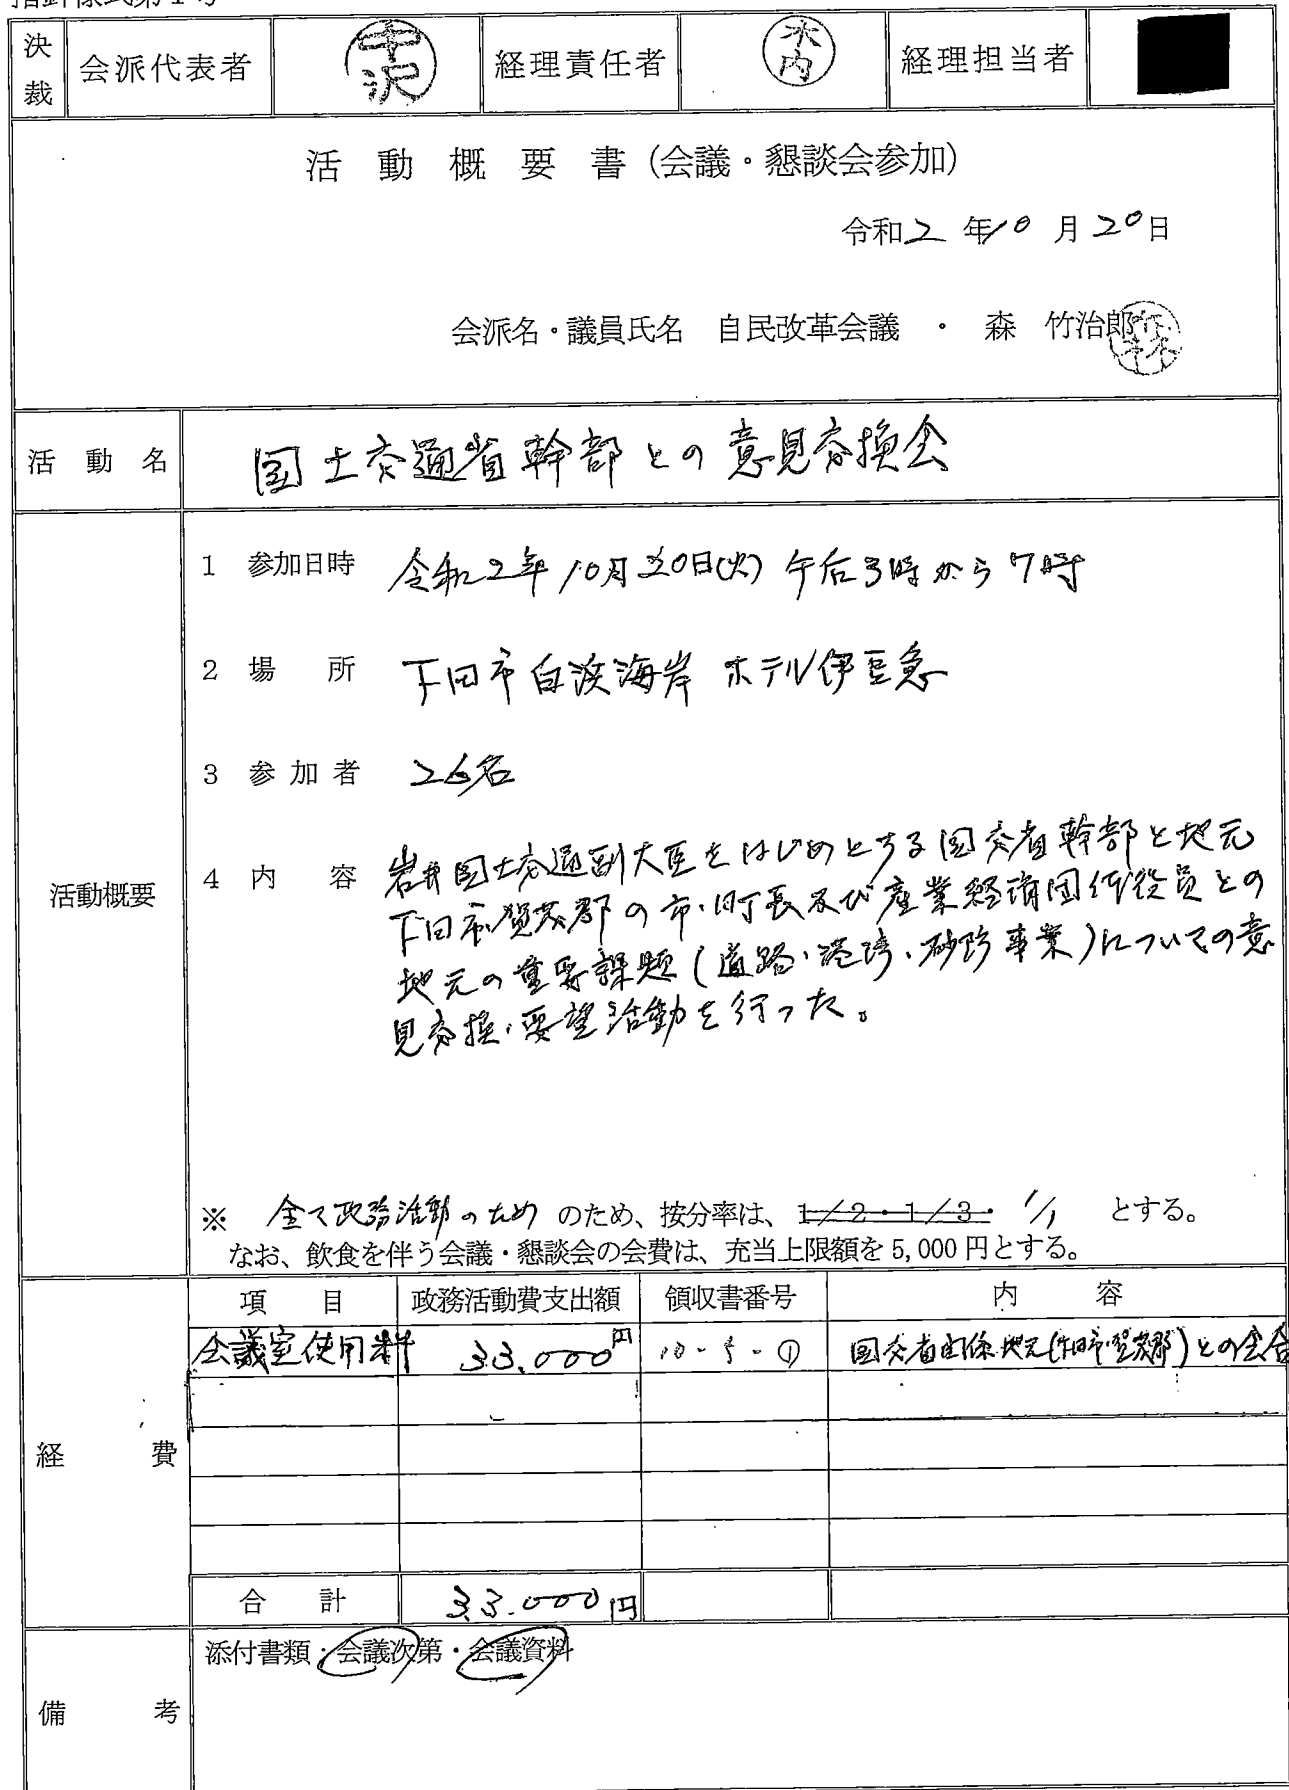 指針様式第1号
決裁 会派代表者 中沢 経理責任者 木内 経理担当者
活動概要書(会議・懇談会参加)
令和2年10月20日
会派名・議員氏名 自民改革会議 ・ 森 竹治郎 森
活動名 国土交通省幹部との意見交換会
1 参加日時 令和2年10月20日(火) 午后3時から7時
2 場所 下田市白浜海岸 ホテル伊豆急
3 参加者 26名
活動概要
4 内容 岩井国土交通副大臣をはじめとする国交省幹部と地元
下田市・賀茂郡の市・町長及び産業経済団体役員との
地元の重要課題(道路・港湾・砂防事業)についての意
見交換・要望活動を行った。
※ 全て政務活動のため のため、按分率は、1/2・1/3・ 1/1 とする。
なお、飲食を伴う会議・懇談会の会費は、充当上限額を5,000円とする。
経費
項目 政務活動費支出額 領収書番号 内容
会議室使用料 33.000円 10-5-① 国交省関係地元(下田市・賀茂郡)との会合
合計 33.000円
備考
添付書類:会議次第・会議資料